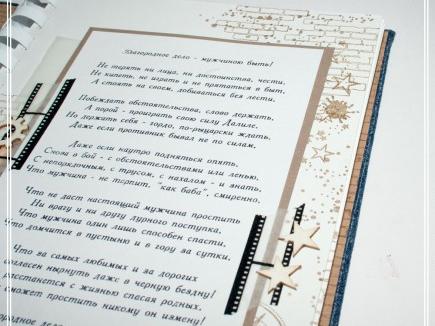 Благородное дело - мужчиною быть!
Не терять ни лица, ни достоинства, чести.
Не кипеть, не играть и не прятаться в быт.
А стоять на своем, добиваться без лести.
Побеждать обстоятельства, слово держать,
А порой - проиграть свою силу Далиле.
Но держать себя - гордо, по-рыцарски ждать,
Даже если противник бывал не по силам.
Даже если наутро подняться опять,
Снова в бой - с обстоятельствами или ленью,
С непорочным, с трусом, с нахалом - и знать,
Что мужчина - не терпит, "как баба", смиренно.
Что не даст настоящий мужчина простить
Ни врагу и ни другу дурного поступка,
Что мужчина один лишь способен спасти,
Что домчится в пустыню и в гору за сутки.
Что за самых любимых и за дорогих
согласен нырнуть даже в черную бездну!
расстанется с жизнью спасая родных,
сможет простить никому он измену!
городное дело